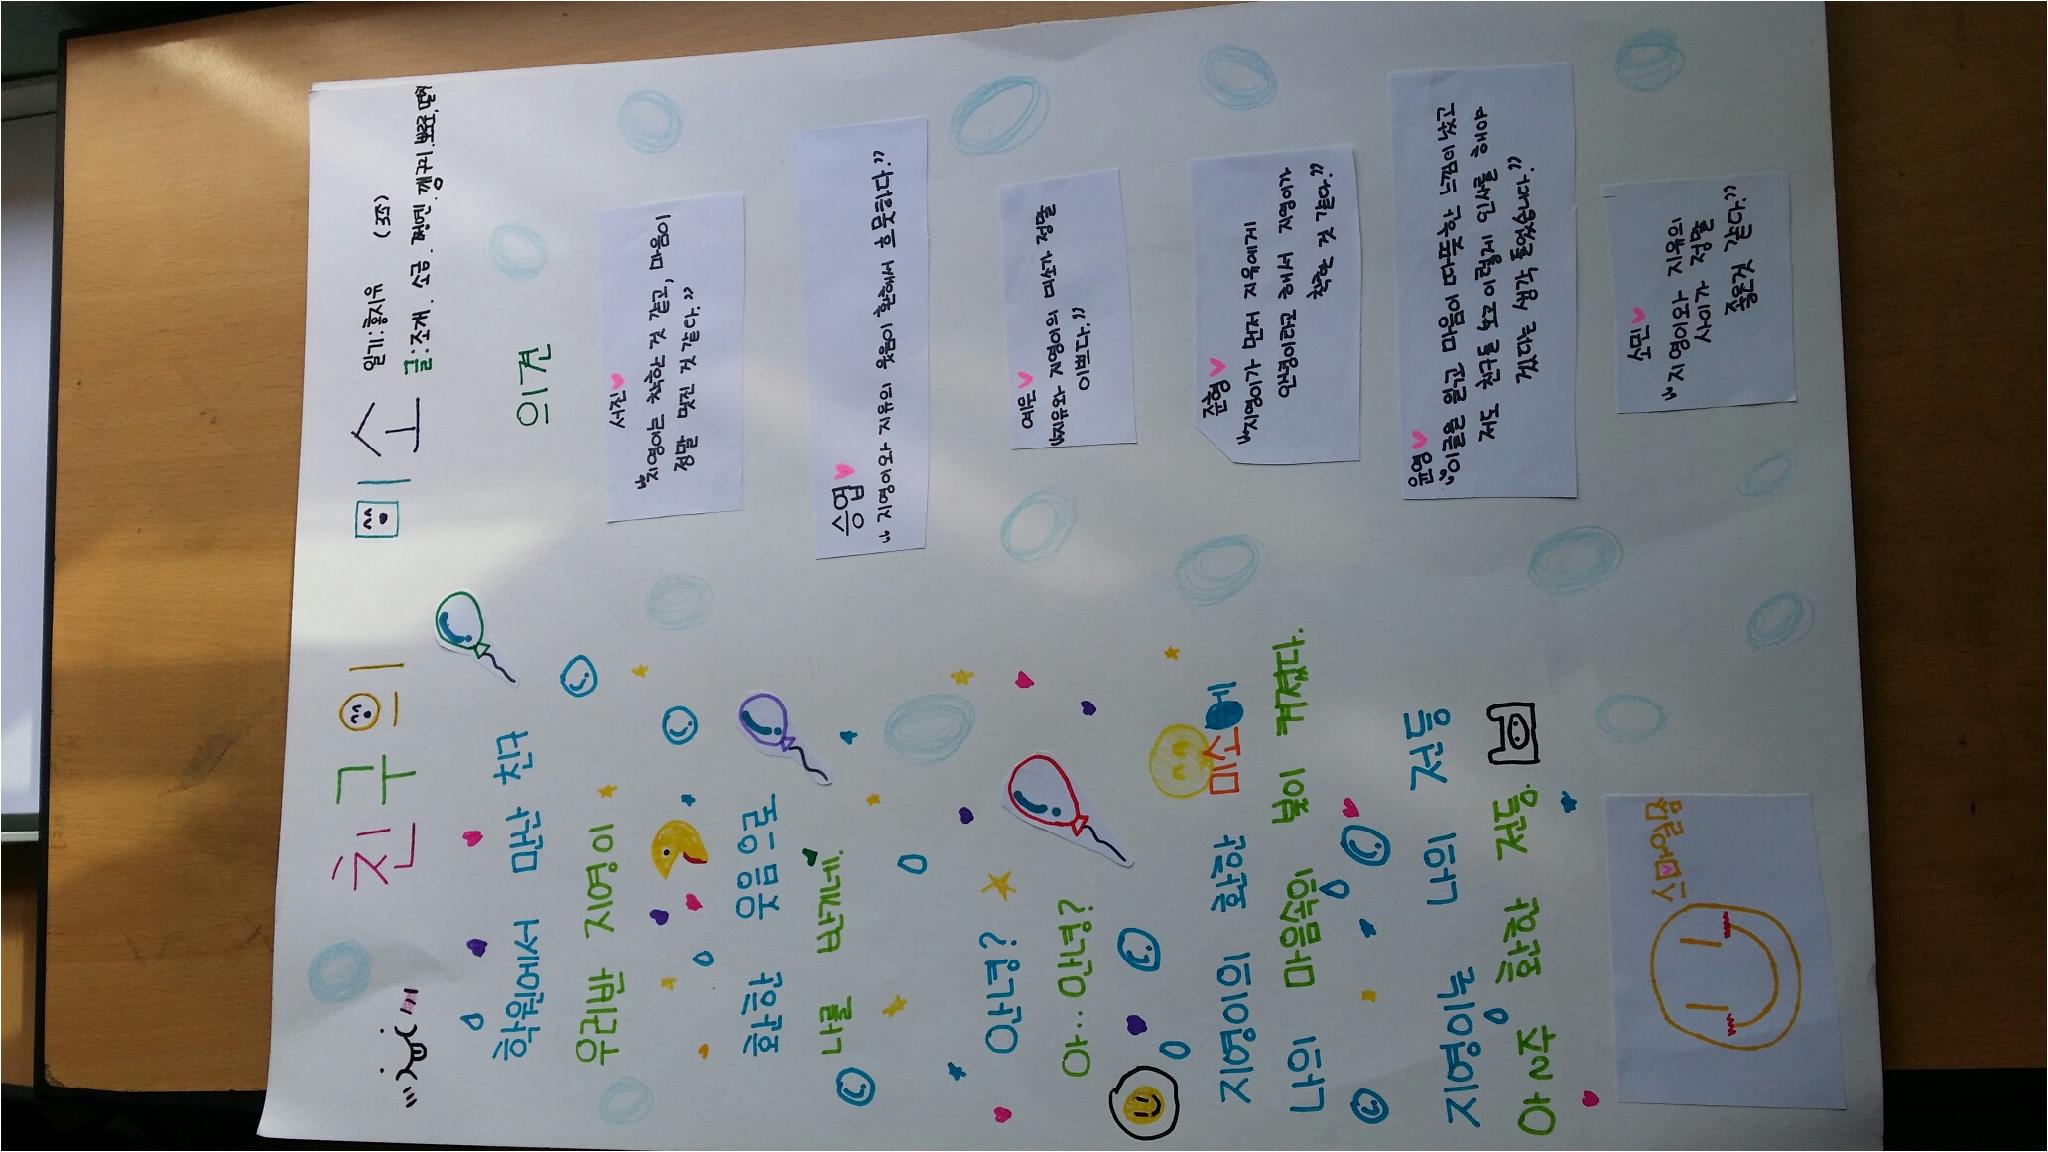 친구의 미소
일기:홍지유 (3학년)
글:조개. 소금. 쩐멘. 깽구리.뽀꾿.맏하
학원에서 만난 친구
우리반 지영이
환한 웃음으로
나를 반기네.
안녕?
아.. 안녕?
지영이의 환한 미소에
나의 마음속 빛이 켜졌다.
지영이는 나의 전등
아주 환한 전등.
의견
서진
"지영이는 착한 것 같고, 마음이
정말 멋진 것 같다."
승엽
"지영이와 지유의 웃음이 환해서 흐뭇하다."
예은
"지유와 지영이의 미소가 정말
이쁘다."
준형
"지영이가 먼저 지유에게
안녕이라고 해서 지영이가
착한 것 같다."
윤영
"이글을 읽고 마음이 따뜻한 느낌이 났고
저도 친구를 보고 이렇게 인사를 해야
겠다는 생각 들었습니다."
소민
"지영이와 지유의
사이가 정말
좋은것 같다."